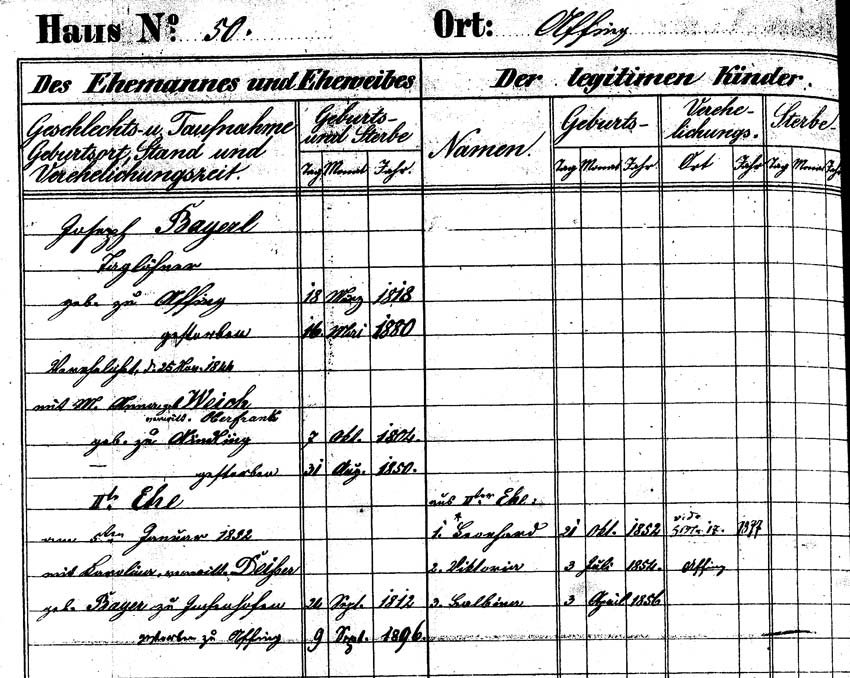 Haus No. 50. Ort: Affing
Des Ehemannes und Eheweibes Der legitimen Kinder.
Geschlechts- u. Taufnahme
Geburtsort, Stand und
Verehelichungszeit.
Geburts-
und Sterbe
Tag Monat Jahr.
Namen.
Geburts-
Tag Monat Jahr
Verehe-
lichungs.
Ort Jahr
Sterbe-
Tag Monat Jahr
Joseph Bayerl
Taglöhner
geb. zu Affing 18 März 1818
gestorben 16 Mai 1880
Verehelicht, d. 25 Nov. 1844
mit M. Anna geb. Weich
verwitt. Oberfrank
geb. zu Aindling 7 Okt. 1804.
gestorben 31 Aug. 1850.
IIte Ehe aus IIter Ehe:
am 5ten Januar 1852 1. Leonhard 21 Okt. 1852 vide 17. 1877
mit Karolina, verwitt. 2. Viktoria 3 Juli 1854. Affing
geb. Bayer zu 24 Sept. 1812 3. Balbina 3 April 1856
gestorben zu Affing 9 Sept. 1896.